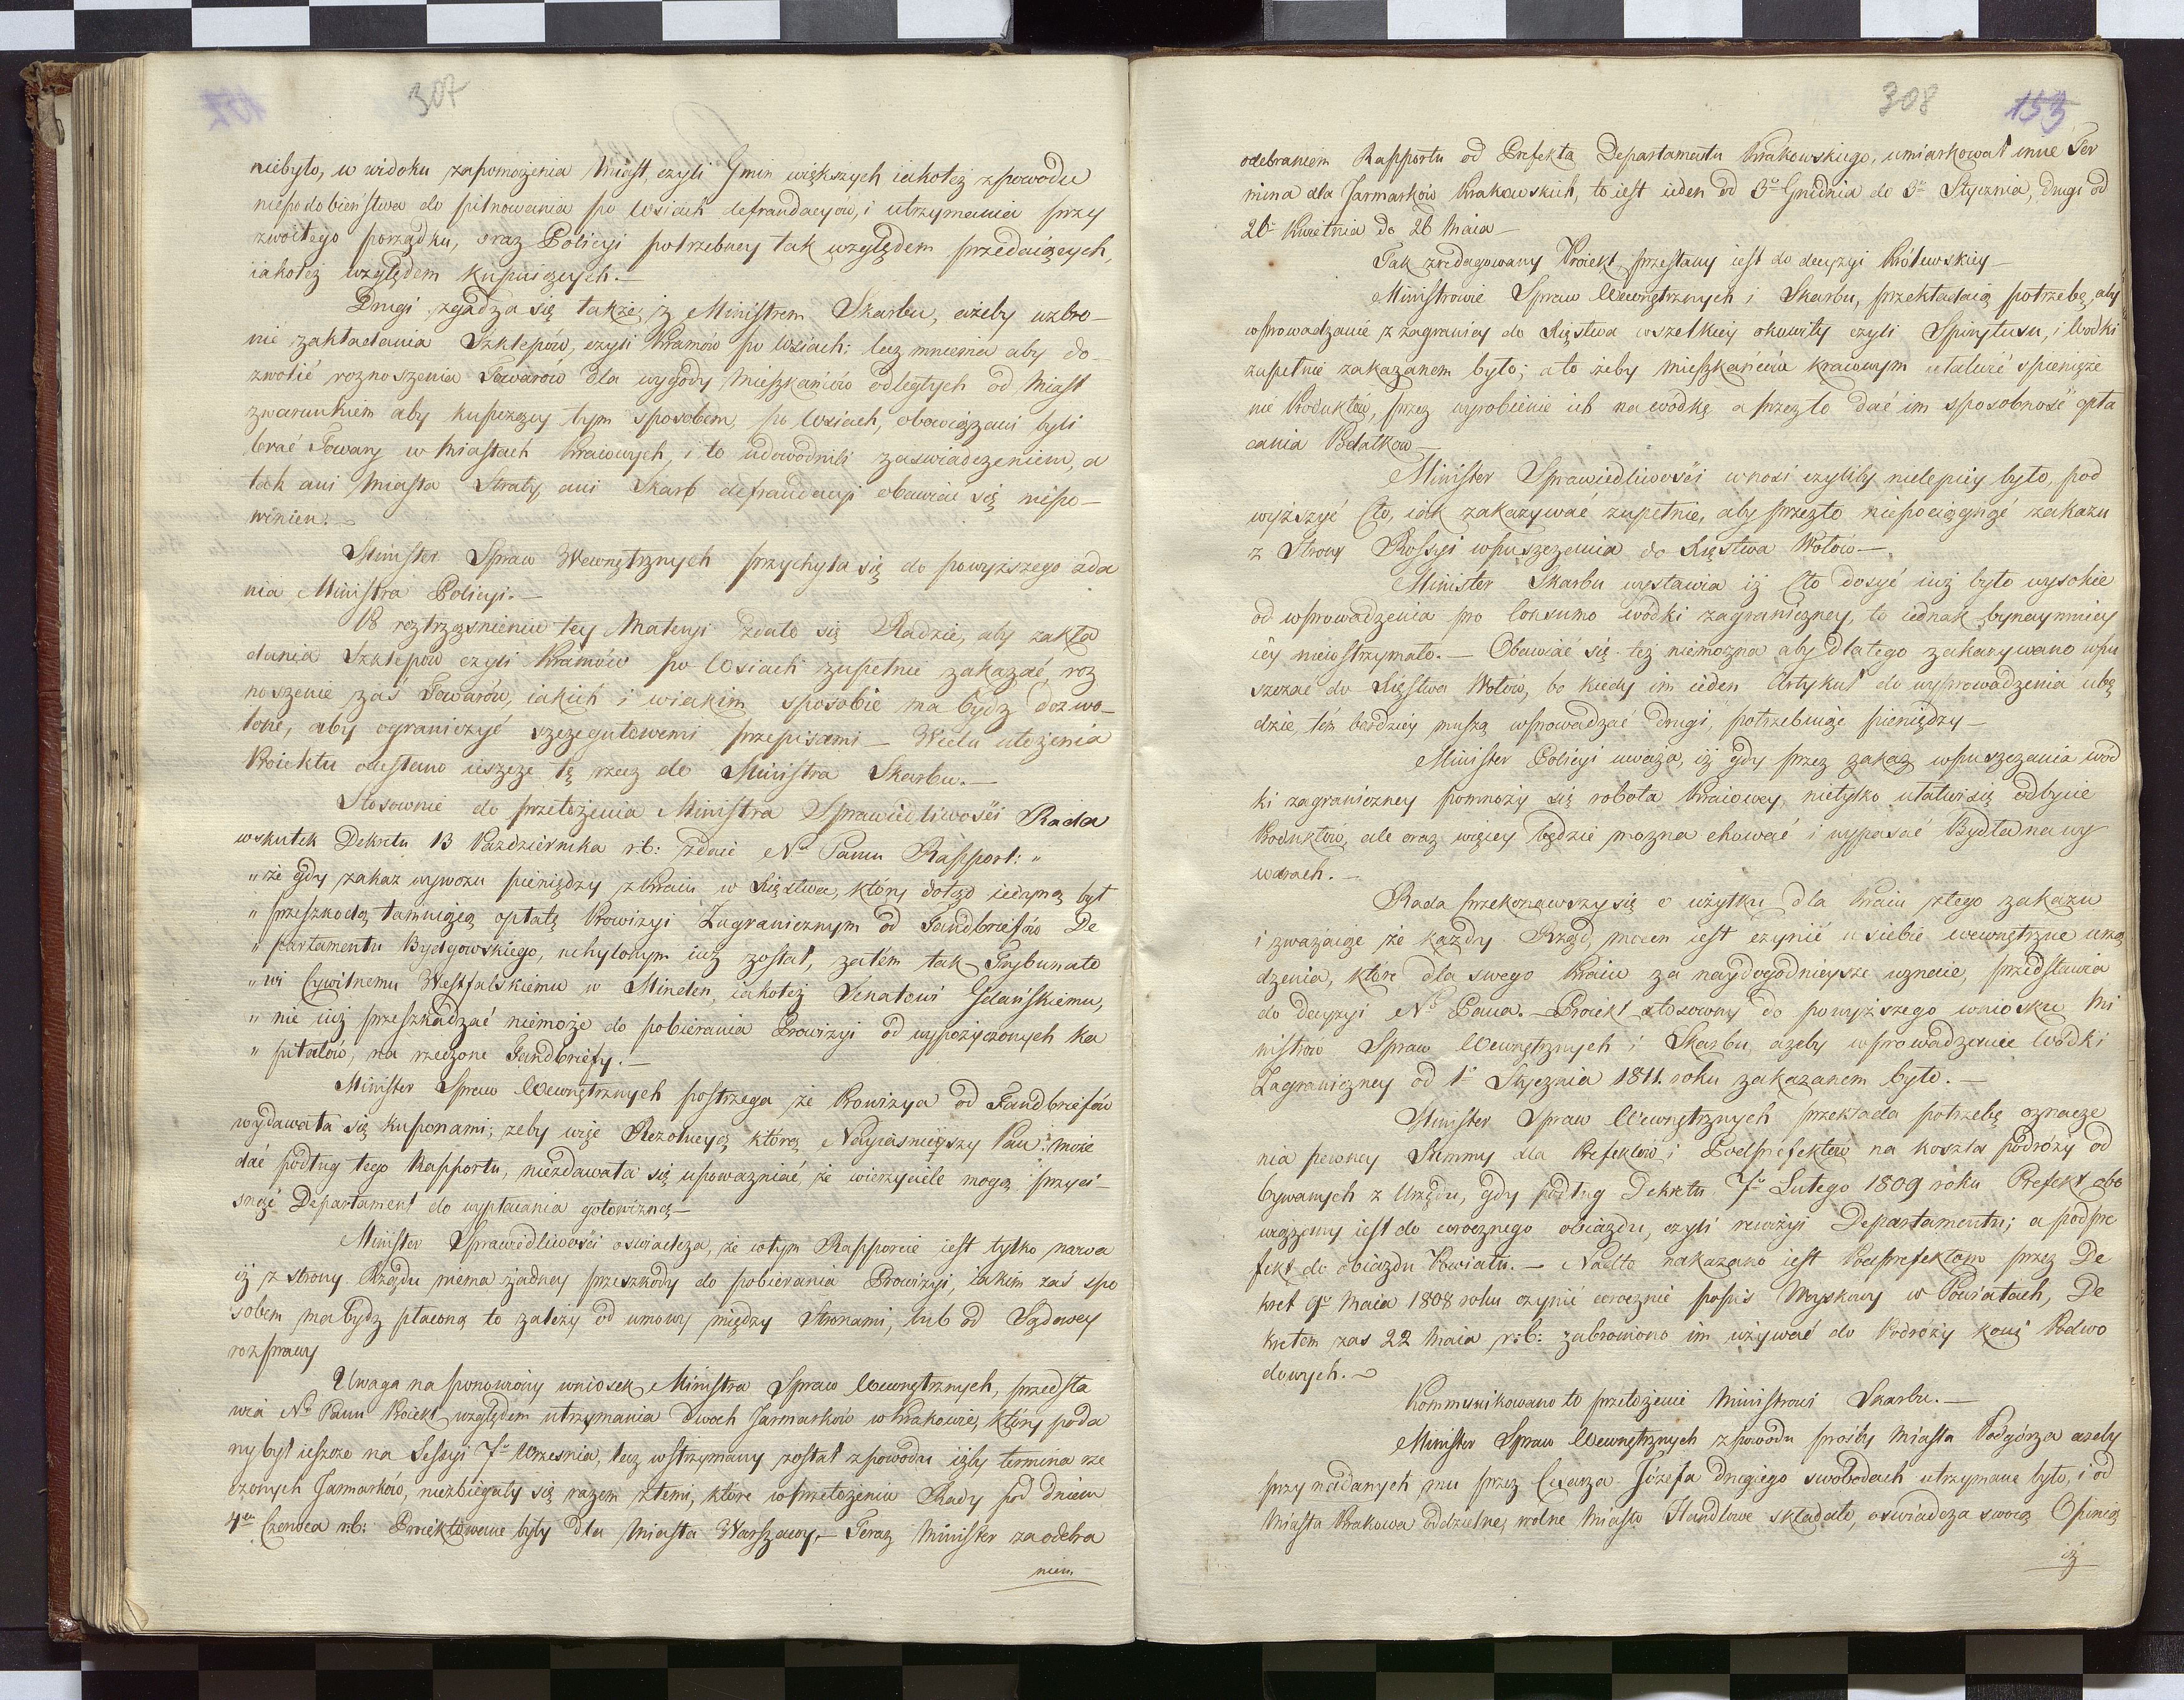 307
niebyło, w widoku zapomożenia Miast, czyli Gmin większych iakoteż z powodu
niepodobieństwa do pilnowania po Wsiach defraudacyów, i utrzymania przy
zwoitego porządku, oraz Policyi potrzebney tak względem przedaiących,
iakoteż względem kupuiących.—
Drugi zgadza się także z Ministrem Skarbu, ażeby uzbro—
nić zakładania Szklepów, czyli Kramów po Wsiach; lecz mniema aby do—
zwolić roznoszenia Towarów dla wygody Mieszkańców odległych od Miast
z warunkiem aby kupczący tym sposobem, po Wsiach, obowiązani byli
brać Towary w Miastach Kraiowych, i to udowodnili zaświadczeniem, a
tak ani Miasta Straty, ani Skarb defraudacyi obawiać się niepo—
winien.—
Minister Spraw Wewnętrznych przychyla się do powyższego zda
nia Ministra Policyi.—
W roztrząśnieniu tey Materyi zdało się Radzie, aby zakła
dania Szklepów czyli Kramów po Wsiach zupełnie zakazać, roz
noszenie zaś Towarów, iakich i w iakim sposobie ma bydź dozwo—
lone, aby ograniczyć szczegułowemi przepisami— W celu ułożenia
Proiektu odesłano ieszcze tę rzecz do Ministra Skarbu.—
Stosownie do przełożenia Ministra Sprawiedliwości Rada
w skutek Dekretu 13 Października r:b: zdaie No Panu Rapport: "
" że gdy zakaz wywozu pieniędzy z Kraiu w Xięstwa, który dotąd iedyną był
" przeszkodą tamuiącą opłatę Prowizyi Zagranicznym od Fandbriefów De
" partamentu Bydgowskiego, uchylonym iuż został, zatém tak Trybunało
" wi Cywilnemu Westfalskiemu w Minden, iakoteż Senatowi Gdańskiemu,
" nic iuż przeszkadzać niemoże do pobierania Prowizyi od wypożyczonych ka
" pitałów, na rzeczone Fandbriefy.—
Minister Spraw Wewnętrznych postrzega że Prowizya od Fandbriefów
wydawała się kuponami; żeby więc Rezolucya którą Nayiaśnieyszy Pan może
dać podług tego Rapportu, niezdawała się upoważniać, że wierzyciele mogą przyci—
snąć Departament do wypłacania gotowizną—
Minister Sprawiedliwości oświadcza, że w tym Rapporcie iest tylko mowa
iż z strony Rządu niema żadney przeszkody do pobierania Prowizyi, iakim zaś spo
sobem ma bydź płaconą to zależy od umowy między Stronami, lub od Sądowey
rozprawy
Uwaga na ponowiony wniosek Ministra Spraw Wewnętrznych, przedsta
wia No Panu Proiekt względem utrzymania dwoch Jarmarków w Krakowie, który poda
ny był ieszcze na Sessyi 7o Września, lecz wstrzymany został z powodu iżby termina rze
czonych Jarmarków, niezbiegały się razem z temi, które w przełożeniu Rady pod dniem
4m Czerwca r:b: Proiektowane były dla Miasta Warszawy.— Teraz Minister za odebra
niem
308
153
odebraniem Rapportu od Prefekta Departamentu Krakowskiego, umiarkował inne Ter
mina dla Jarmarków Krakowskich, to iest ieden od 3o Grudnia do 3o Stycznia, drugi od
26o Kwietnia do 26 Maia—
Tak zredagowany Proiekt, przesłany iest do decyzyi Królewskiey—
Ministrowie Spraw Wewnętrznych i Skarbu, przekładaią potrzebę aby
wprowadzanie z zagranicy do Xięstwa wszelkiey okowity czyli Spirytusu, i Wodki
zupełnie zakazanem było; a to żeby Mieszkańców kraiowym ułatwić spienięże
nie Produktów, przez wyrobienie ich na wódkę a przez to dać im sposobność opła
cania Podatków—
Minister Sprawiedliwości wnosi czyliby nielepiey było, pod
wyższyć Cło, iak zakazywać zupełnie, aby przezto niepociągnąć zakazu
z Strony Rossyi wpuszczenia do Xięstwa Wołów—
Minister Skarbu wystawia iż Cło dosyć iuż było wysokie
od wprowadzenia pro Consumo wodki zagraniczney, to iednak bynaymniey
iey niewstrzymało.— Obawiać się też niemożna aby dlatego zakazywano wpu
szczać do Xięstwa Wołów, bo kiedy im ieden Artykuł do wyprowadzenia ubę
dzie, tém bardziey muszą wprowadzać drugi, potrzebuiąc pieniędzy—
Minister Policyi uważa, iż gdy przez zakaz wpuszczania wód
ki zagraniczney pomnoży się robota kraiowey, nietylko ułatwi się odbycie
Produktów, ale oraz więcey będzie można chować i wypasać Bydła na wy
warach.—
Rada przekonawszy się o użytku dla Kraiu z tego zakazu
i zważaiąc że każdy Rząd, mocen iest czynić u siebie wewnętrzne urzą
dzenia, które dla swego Kraiu za naydogodnieysze uznaie, przedstawia
do decyzyi No Pana.— Proiekt stosowny do powyższego wniosku Mi
nistrów Spraw Wewnętrznych i Skarbu, ażeby wprowadzenie Wódki
Zagraniczney od 1o Stycznia 1811. roku zakazanem było.—
Minister Spraw Wewnętrznych przekłada potrzebę oznacze
nia pewney Summy dla Prefektów i Podprefektów na koszta podróży od
bywanych z Urzędu, gdy podług Dekretu 7o Lutego 1809 roku Prefekt obo
wiązany iest do corocznego obiazdu, czyli rewizyi Departamentu; a podpre
fekt do obiazdu Powiatu.— Nadto nakazano iest Podprefektom przez De
kret 9o Maia 1808 roku czynić corocznie popis Woyskowy w Powiatach, De
kretem zas 22 Maia r:b: zabroniono im używać do Podróży koni Podwo
dowych.—
Kommunikowano to przełożenie Ministrowi Skarbu.—
Minister Spraw Wewnętrznych z powodu prośby Miasta Podgórza ażeby
przy nadanych mu przez Cesarza Józefa drugiego swobodach utrzymane było, i od
Miasta Krakowa oddzielne, wolne Miasto Handlowe składało, oświadcza swoią Opinią
iż